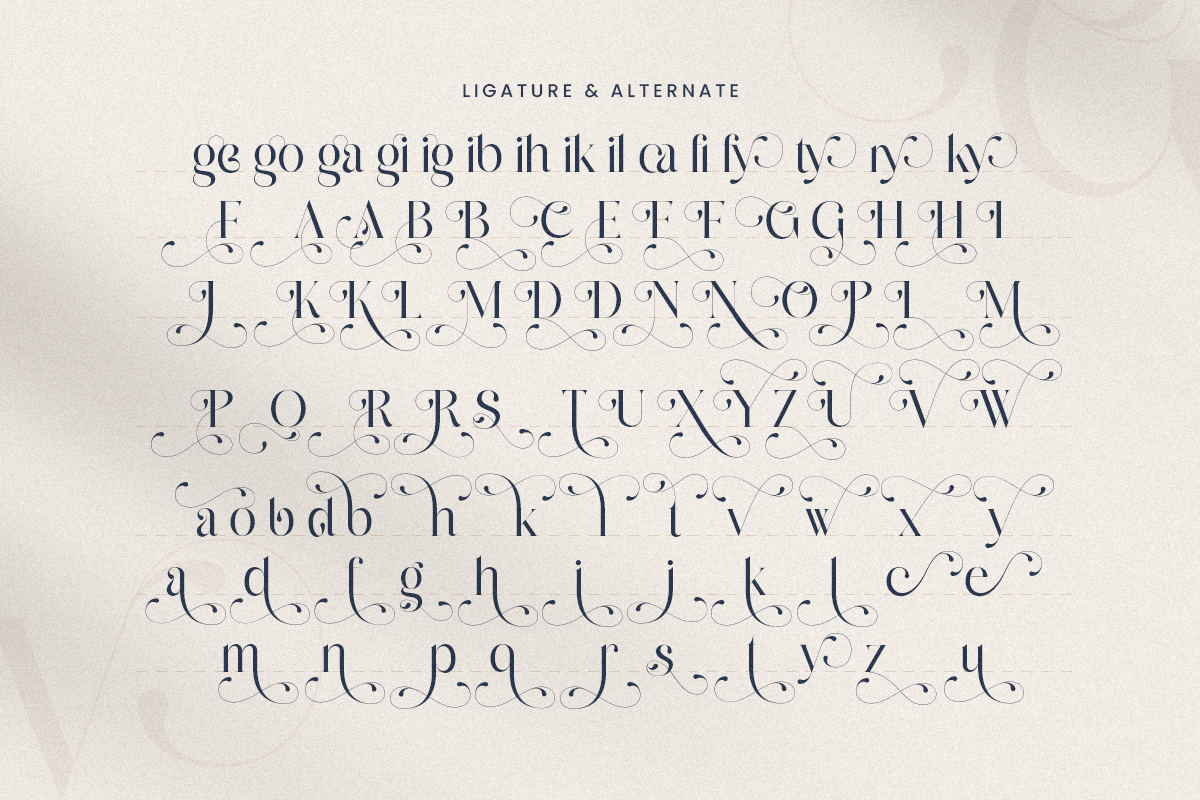 LIGATURE & ALTERNATE
ge go ga gi ig ib ih ik il ca fi fy ty ry ky
F A A B B C E F F G G H H I
J K K L M D D N N O P L M
P O R R S T U X Y Z U V W
a o b d b h k l t v w x y
a d f g h i j k l c e
m n p q r s t y z u